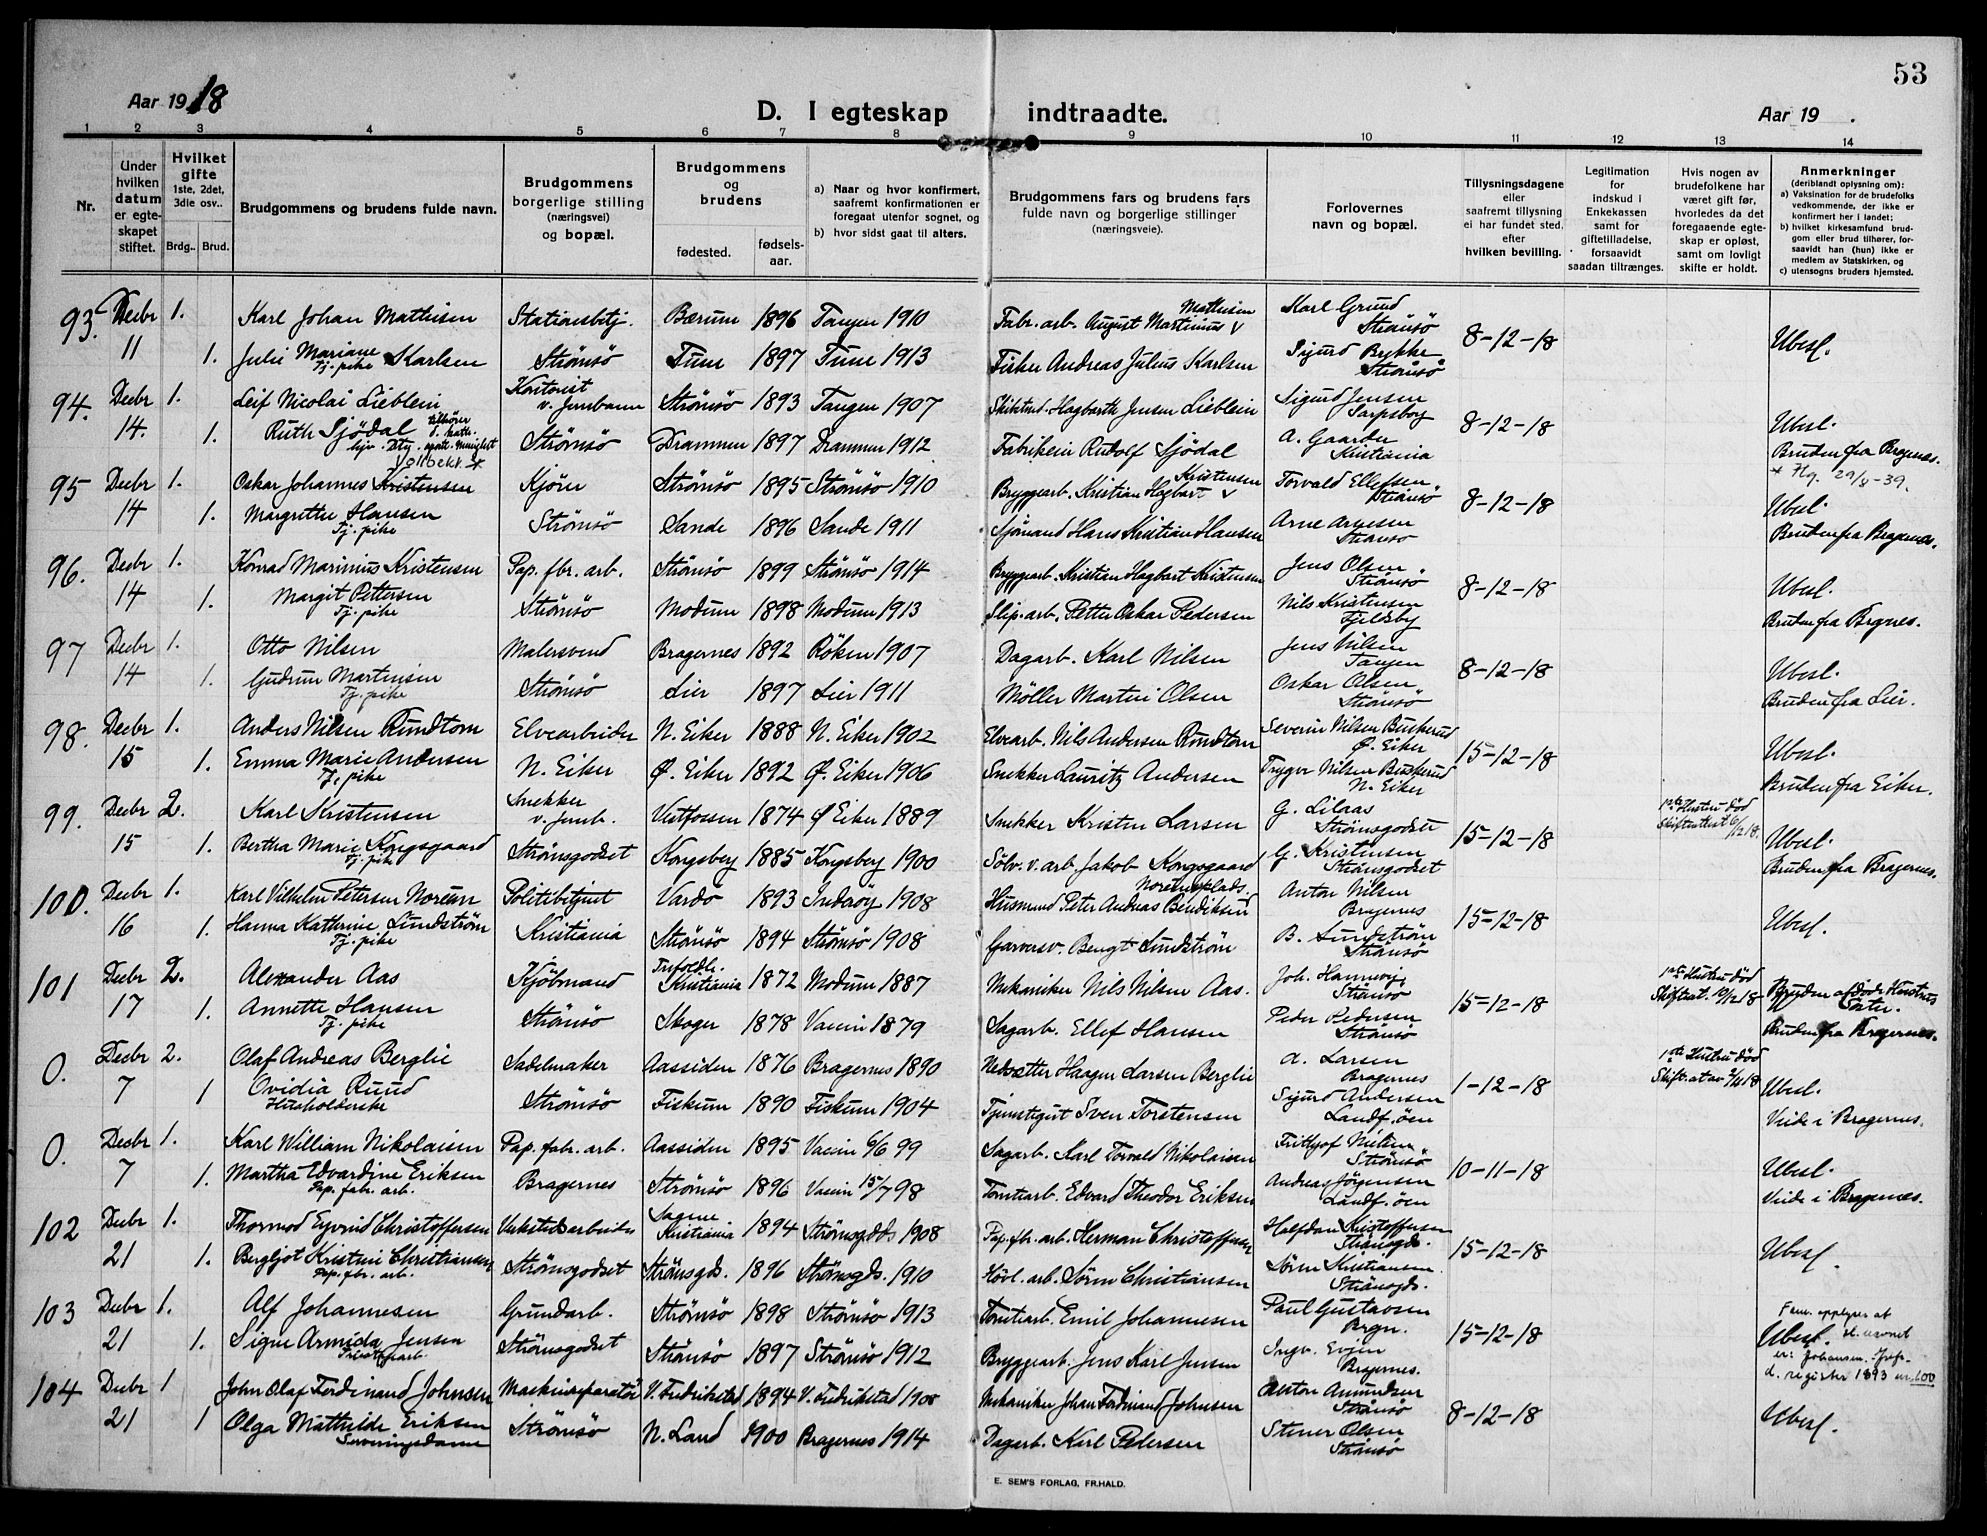 53
Aar 1918
D. I egteskap indtraadte.
Aar 19 .
1 2 3 4 5 6 7 8 9 10 11 12 13 14
Nr.
Under hvilken datum er egteskapet stiftet.
Hvilket gifte 1ste, 2det, 3die osv..
Brdg.. Brud.
Brudgommens og brudens fulde navn.
Brudgommens borgerlige stilling (næringsvei) og bopæl.
Brudgommens og brudens
fødested. fødsels-aar.
a) Naar og hvor konfirmert, saafremt konfirmationen er foregaat utenfor sognet, og
b) hvor sidst gaat til alters.
Brudgommens fars og brudens fars fulde navn og borgerlige stillinger (næringsveie).
Forlovernes navn og bopæl.
Tillysningsdagene eller saafremt tillysning ei har fundet sted, efter hvilken bevilling.
Legitimation for indskud i Enkekassen samt for giftetilladelse, forsaavidt saadan tiltrænges.
Hvis nogen av brudefolkene har været gift før, hvorledes da det foregaaende egteskap er opløst, samt om lovligt skifte er holdt.
Anmerkninger (deriblandt oplysning om):
a) Vaksination for de brudefolks vedkommende, der ikke er konfirmert her i landet;
b) hvilket kirkesamfund brudgom eller brud tilhører, forsaavidt han (hun) ikke er medlem av Statskirken, og
c) utensogns bruders hjemsted.
93. Decbr 1. Karl Johan Mathisen Stationsbetj. Bærum 1896 Tangen 1910 Fabr. arb. August Martinius Mathisen Karl Grund Strömsö 8-12-18 Ubesl.
11 1. Julie Mariane Karlsen Tj. pike Strömsö Tune 1897 Tune 1913 Fisker Andreas Julius Karlsen Sigurd Bykke Strömsö
94. Decbr 1. Leif Nicolai Lieblein Kontorist v. Jernbann Strömsö 1893 Tangen 1907 Hagbarth Jensen Lieblein Sigurd Jensen Sarpsborg 8-12-18 Ubesl.
14. 1. Ruth Sjödal Strömsö Drammen 1897 Drammen 1912 Fabrikeier Rudolf Sjödal A. Gaarder Kristiania Bruden fra Bragernes.
95 Decbr 1. Oskar Johannes Kristensen Kjörer Strömsö 1895 Strömsö 1910 Bryggearb. Kristian Hagbart Kristensen Torvald Ellefsen Strömsö 8-12-18 Ubesl.
14 1. Margrethe Hansen Tj. pike Strömsö Sande 1896 Sande 1911 Sjömand Hans Kristian Hansen Arne Arnesen Strömsö Bruden fra Bragernes.
96. Decbr 1. Konrad Marinius Kristensen Pap. fbr. arb. Strömsö 1899 Strömsö 1914 Bryggearb. Kristian Hagbart Kristensen Jens Olsen Strömsö 8-12-18 Ubesl.
14 1. Margit Pettersen Tj. pike Strömsö Modum 1898 Modum 1913 Slip. arb. Petter Oskar Pedersen Nils Kristensen Fjeldsby Bruden fra Brgnes.
97 Decbr 1. Otto Nilsen Malersvend Bragernes 1892 Röken 1907 Dagarb. Karl Nilsen Jens Nilsen Tangen 8-12-18 Ubesl.
14 1. Gudrun Martinsen Tj. pike Strömsö Lier 1897 Lier 1911 Möller Martin Olsen Oskar Olsen Strömsö Bruden fra Lier.
98. Decbr 1. Anders Nilsen Rundtom Elvearbeider N. Eiker 1888 N. Eiker 1902 Elvearb. Nils Andersen Rundtom Severin Nilsen Buskerud Ø. Eiker 15-12-18 Ubesl.
15 1. Emma Marie Andersen Tj. pike N. Eiker Ø. Eiker 1892 Ø. Eiker 1906 Snekker Lauritz Andersen Trygve Nilsen Buskerud N. Eiker Bruden fra Eiker.
99. Decbr 2. Karl Kristensen Snekker v. Jernb. Vestfossen 1874 Ø Eiker 1889 Snekker Kristen Larsen G. Lilaas Strömsgodset 15-12-18 1ste Hustru död Skifteattest 6/12 18. Ubesl.
15 1. Bertha Marie Kongsgaard Tj. pike Strömsgodset Kongsberg 1885 Kongsberg 1900 Sölv. v. arb. Jakob Kongsgaard G. Kristensen Strömsgodset Bruden fra Bragernes.
100. Decbr 1. Karl Vilhelm Petersen Noreum Politibetjent Vardö 1893 Inderöy 1908 Husmand Peter Andreas Bendiksen Anton Nilsen Bragernes 15-12-18 Ubesl.
16 1. Hanna Kathrine Lundström Tj. pike Kristiania Strömsö 1894 Strömsö 1908 Garversv. Bengt Lundström B. Lundström Strömsö
101 Decbr 2. Alexander Aas Kjöbmand Kristiania 1872 Modum 1887 Mekaniker Nils Nilsen Aas. Joh. Hannevig Strömsö 15-12-18 1ste Hustru död Skifteat. 10/12 18 Bruden afdöde Hustrus Söster.
17 1. Annette Hansen Tj. pike Strömsö Skoger 1878 Vaccin 1879 Sagarb. Ellef Hansen Peder Pedersen Strömsö Bruden fra Bragernes.
0. Decbr 2. Olaf Andreas Berglie Sadelmaker Aassiden 1876 Bragernes 1890 Haagen Larsen Berglie A. Larsen Bragernes 1-12-18 1ste Hustru död Ubesl.
7 1 Ovidia Ruud Husholderske Strömsö Fiskum 1890 Fiskum 1904 Tjenestegut Sven Torstensen Sigurd Andersen Landf. öen Viede i Bragernes.
0. Decbr 1. Karl William Nikolaisen Pap. fabr. arb. Aassiden 1895 Vaccin 6/6 99 Sagarb. Karl Torvald Nikolaisen Fritjof Nielsen Strömsö 10-11-18 Ubesl.
7 1. Martha Edvardine Eriksen Pap. fabr. arb. Bragernes Strömsö 1896 Vaccin 15/7 98 Tomtearb. Edvard Theodor Eriksen Andreas Jörgensen Landf. öen Viede i Bragernes.
102 Decbr 1. Thormod Eyvind Christoffersen Verkstedsarbeider Sagene Kristiania 1894 Strömsgds 1908 Pap. fbr. arb. Herman Christoffersen Halfdan Kristoffersen Strömsgds. 15-12-18 Ubesl.
21 1. Bergljot Kristine Christiansen Pap. fbr. arb. Strömsgodset Strömsgds. 1896 Strömsgds. 1910 Hövl. arb. Sören Christiansen Sören Kristiansen Strömsgds.
103 Decbr 1. Alf Johannesen Grundarb. Strömsö 1898 Strömsö 1913 Tomtearb. Emil Johannesen Paul Gustavsen Brgn. 15-12-18 Ubesl.
21 1. Signe Armida Jensen Strömsgodset Strömsö 1897 Strömsö 1912 Bryggearb. Jens Karl Jensen Ingv. Evjen Bragernes. er: Johansen. d. register 1893 nr. 100
104 Decbr 1 John Olaf Ferdinand Johnsen Maskinreparatör V. Fredrikstad 1894 V. Fredrikstad 1908 Mekaniker Johan Ferdinand Johnsen Anton Amundsen Strömsö 8-12-18 Ubesl.
21 1 Olga Mathilde Eriksen Serveringsdame Strömsö N. Land 1900 Bragernes 1914 Dagarb. Karl Pedersen Stener Olsen Strömsö
E. SEM'S FORLAG, FR.HALD.